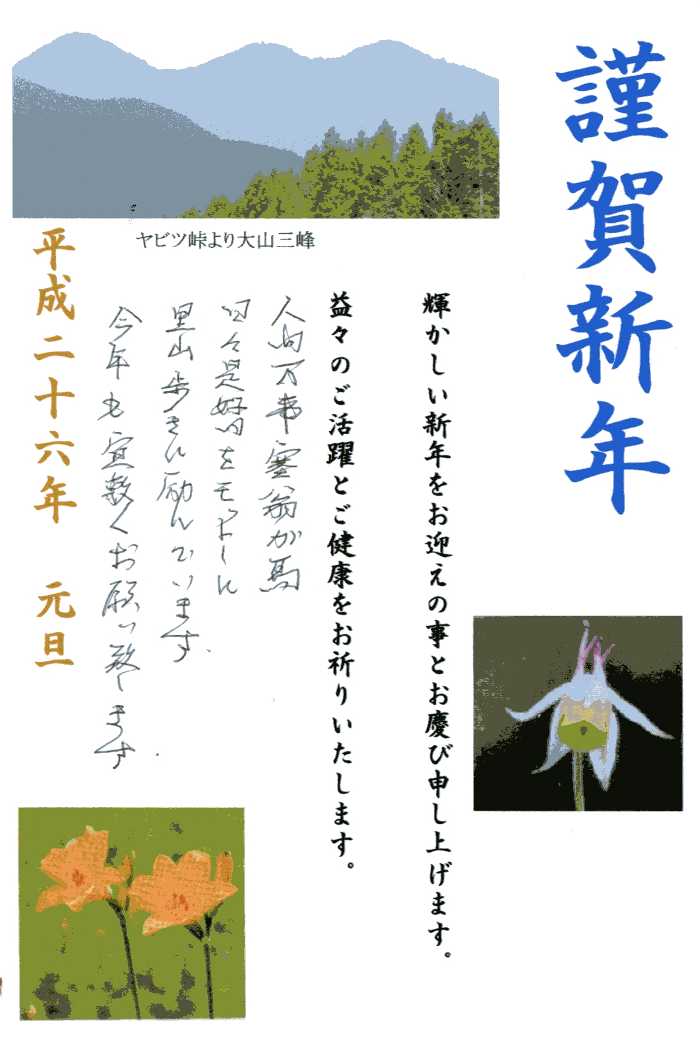 謹賀新年
輝かしい新年をお迎えの事とお慶び申し上げます。
益々のご活躍とご健康をお祈りいたします。
人向万事塞翁が馬
日々是好日をモットーに
里山歩きに励んでいます.
今年も宜敷くお願い致します.
平成二十六年 元旦
ヤビツ峠より大山三峰